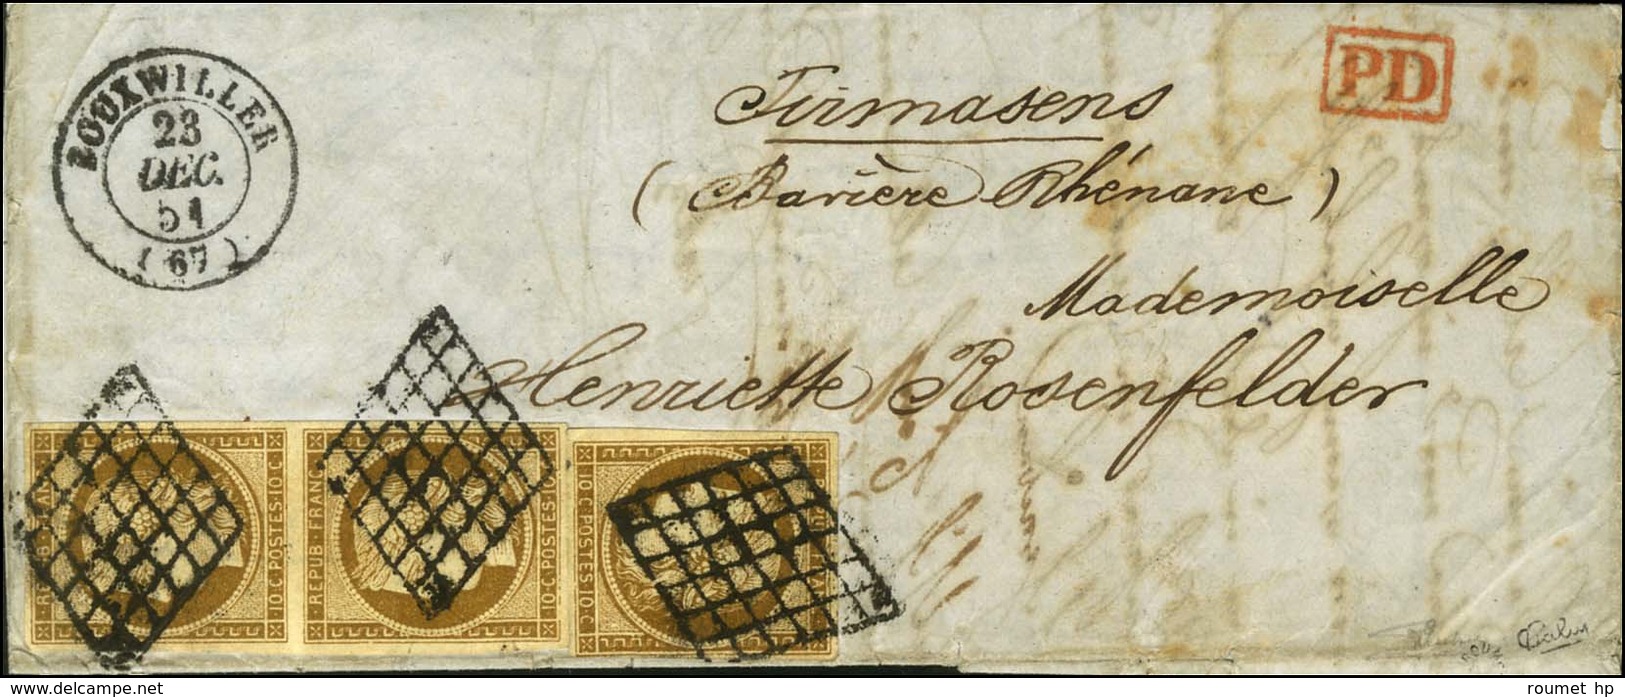 BOUXWILLER
23
DEC.
51
(67)
PD
Pirmasens
(Bavière Rhénane)
Mademoiselle
Henriette Rosenfelder
REPUB. FRANC.
10·C·POSTES·10·C
REPUB. FRANC.
10·C·POSTES·10·C
10·C·POSTES·10·C
roumet hp